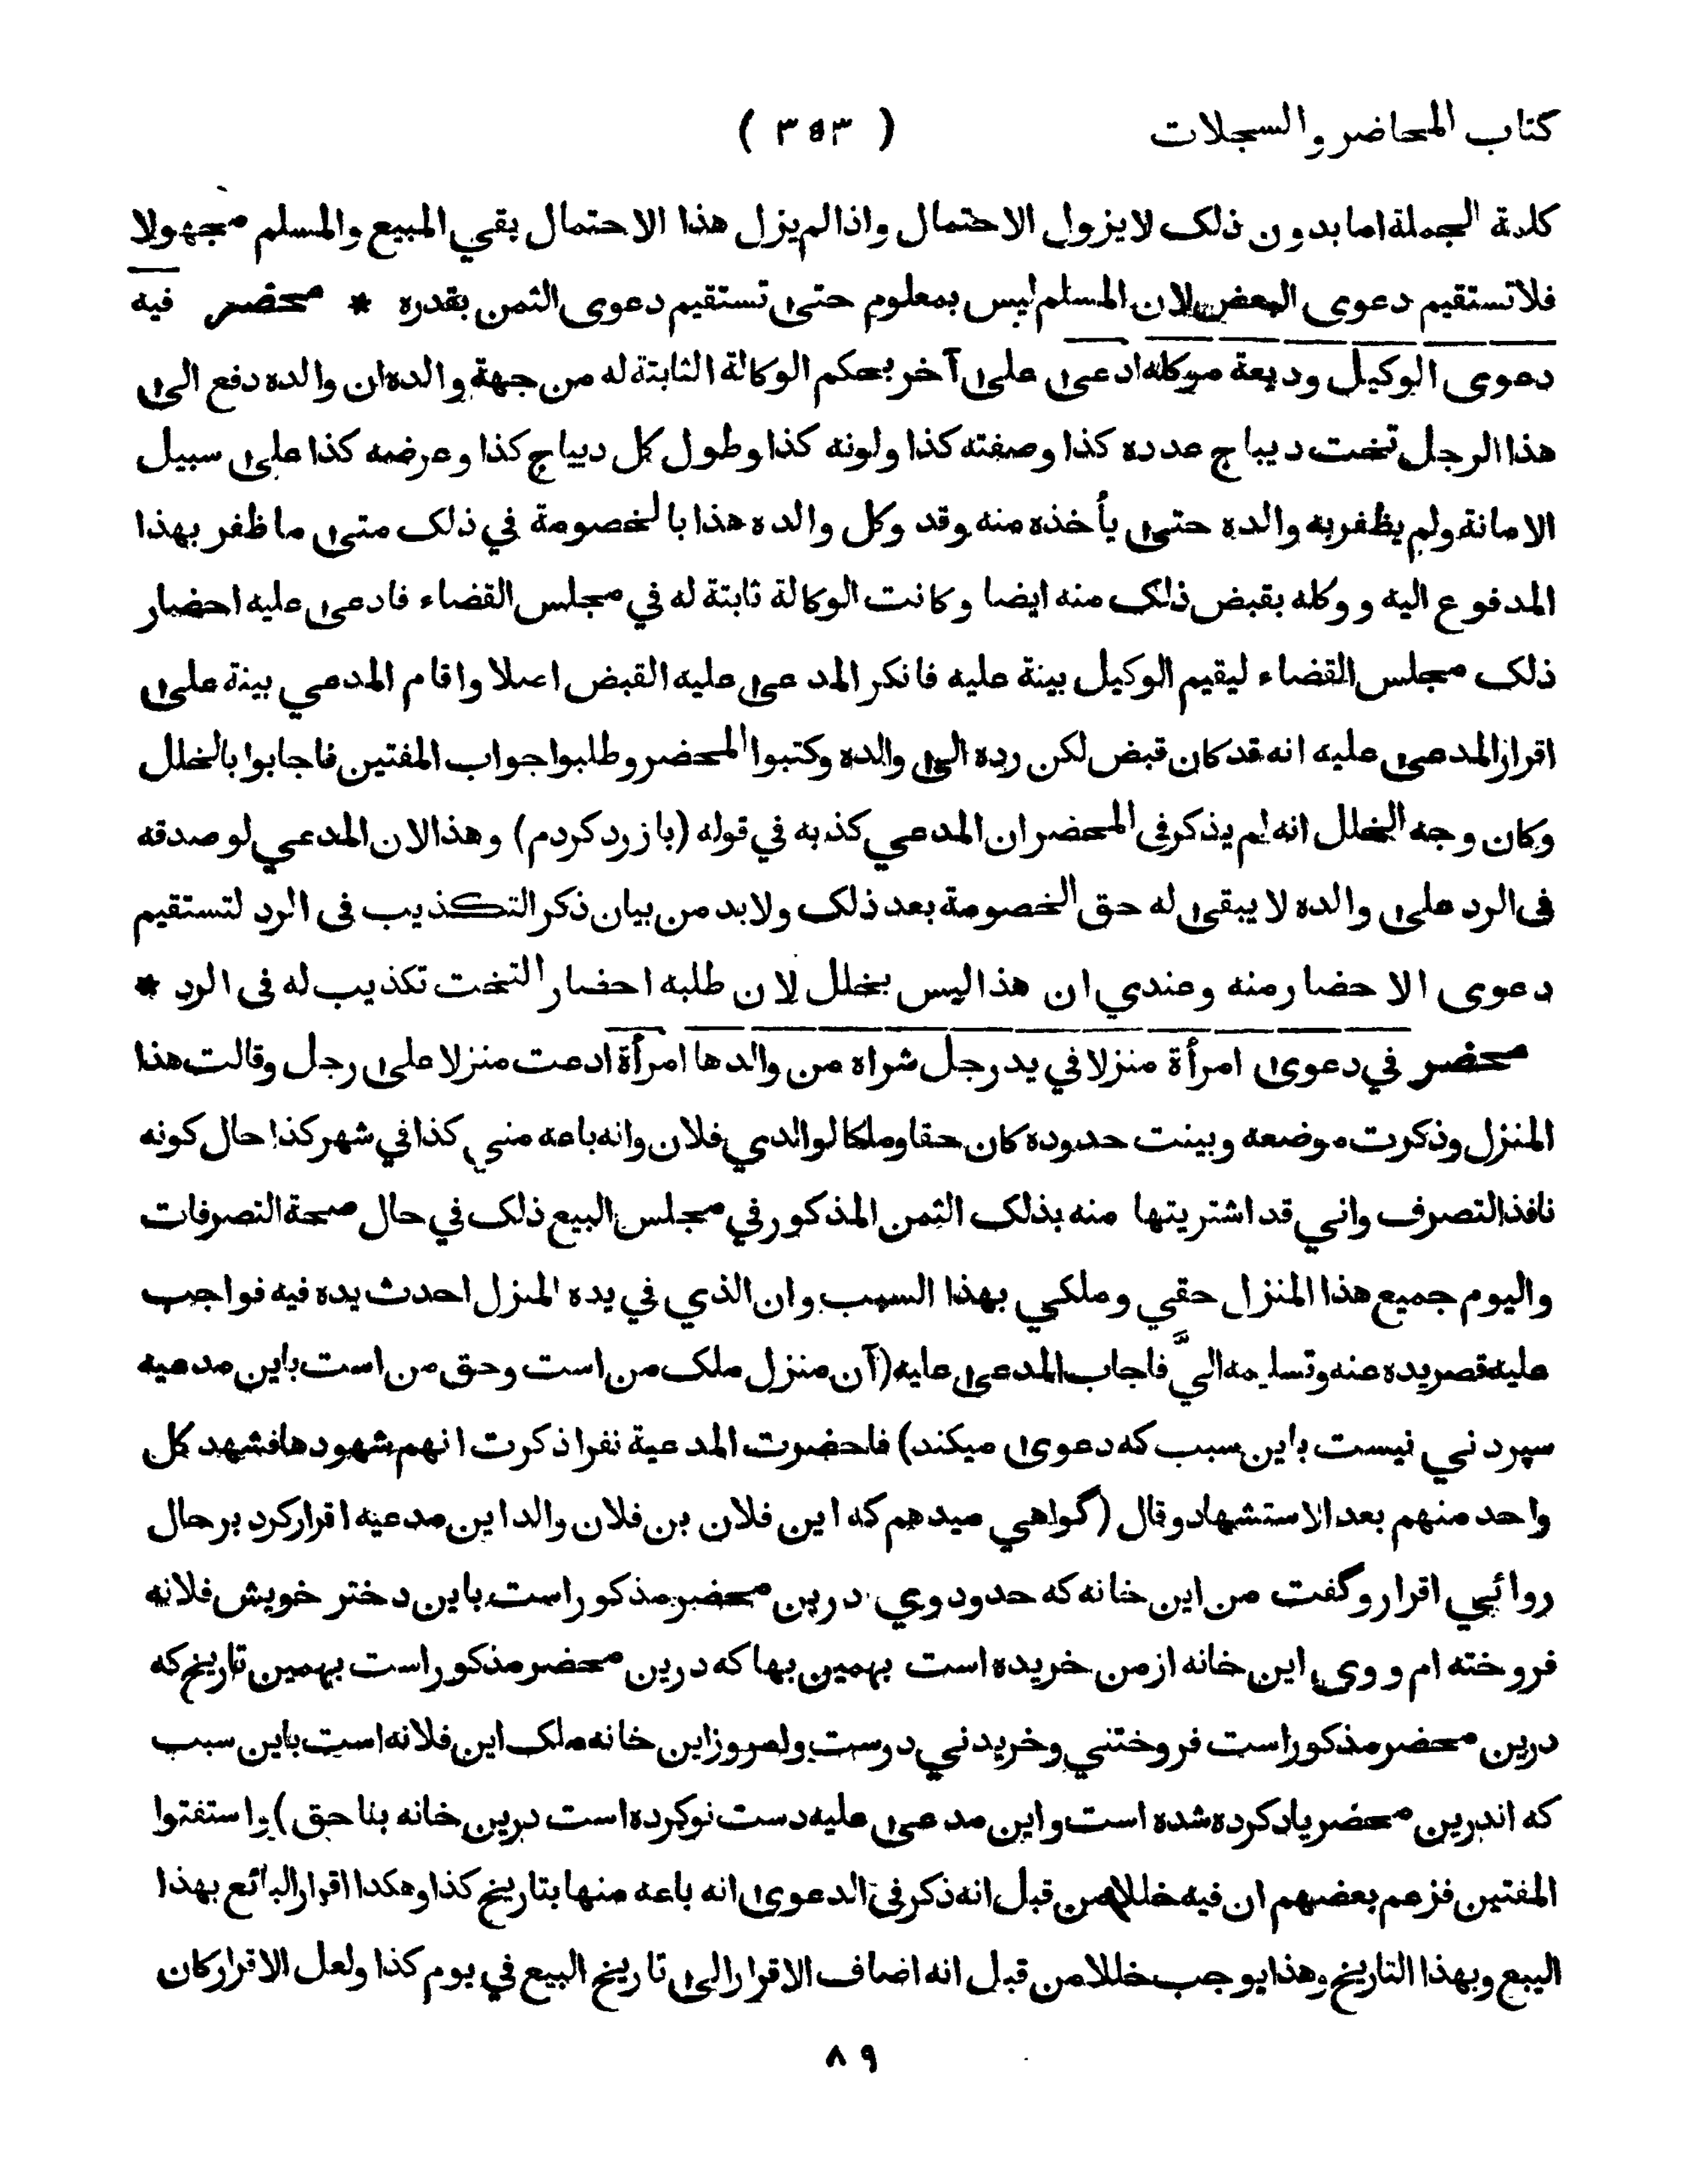 كتاب المحاضر والسجلات ( ٣٥٣ )
كلمة الجملة اما بدون ذلك لا يزول الاحتمال واذا لم يزل هذا الاحتمال بقي المبيع والمسلم مجهولا
فلا تستقيم دعوى البعض لان المسلم ليس بمعلوم حتى تستقيم دعوى الثمن بقدره * محضر فيه
دعوى الوكيل وديعة موكله ادعى على آخر بحكم الوكالة الثابتة له من جهة والده ان والده دفع الى
هذا الرجل تخت ديباج عدده كذا وصفته كذا ولونه كذا وطول كل ديباج كذا وعرضه كذا على سبيل
الامانة ولم يظفر به والده حتى يأخذه منه وقد وكل والده هذا بالخصومة في ذلك متى ما ظفر بهذا
المدفوع اليه ووكله بقبض ذلك منه ايضا وكانت الوكالة ثابتة له في مجلس القضاء فادعى عليه احضار
ذلك مجلس القضاء ليقيم الوكيل بينة عليه فانكر المدعى عليه القبض اصلا واقام المدعي بينة على
اقرار المدعى عليه انه قد كان قبض لكن رده الى والده وكتبوا المحضر وطلبوا جواب المفتين فاجابوا بالخلل
وكان وجه الخلل انه لم يذكر فى المحضر ان المدعي كذبه في قوله (باز رد كردم) وهذا الان المدعي لو صدقه
فى الرد على والده لا يبقى له حق الخصومة بعد ذلك ولابد من بيان ذكر التكذيب فى الرد لتستقيم
دعوى الاحضار منه وعندي ان هذا ليس بخلل لان طلبه احضار التخت تكذيب له فى الرد *
محضر في دعوى امرأة منزلا في يد رجل شراه من والدها امرأة ادعت منزلا على رجل وقالت هذا
المنزل وذكرت موضعه وبينت حدوده كان حقا وملكا لوالدي فلان وانه باعه مني كذا في شهر كذا حال كونه
نافذ التصرف واني قد اشتريتها منه بذلك الثمن المذكور في مجلس البيع ذلك في حال صحة التصرفات
واليوم جميع هذا المنزل حقي وملكي بهذا السبب وان الذي في يده المنزل احدث يده فيه فواجب
عليه قصر يده عنه وتسليمه اليّ فاجاب المدعى عليه (آن منزل ملك من است وحق من است باين مدعيه
سپردني نيست باين سبب كه دعوى ميكند) فاحضرت المدعية نفرا ذكرت انهم شهودها فشهد كل
واحد منهم بعد الاستشهاد وقال (گواهي ميدهم كه اين فلان بن فلان والد اين مدعيه اقرار كرد بر حال
روائي اقرار وگفت من اين خانه كه حدود وي درين محضر مذكور است باين دختر خويش فلانه
فروخته ام ووى اين خانه از من خريده است بهمين بها كه درين محضر مذكور است بهمين تاريخ كه
درين محضر مذكور است فروختني وخريدني درست وامروز اين خانه ملك اين فلانه است باين سبب
كه اندرين محضر ياد كرده شده است واين مدعى عليه دست نو كرده است درين خانه بنا حق) واستفتوا
المفتين فزعم بعضهم ان فيه خللا من قبل انه ذكر فى الدعوى انه باعه منها بتاريخ كذا وهكذا اقرار البائع بهذا
البيع وبهذا التاريخ وهذا يوجب خللا من قبل انه اضاف الاقرار الى تاريخ البيع في يوم كذا ولعل الاقرار كان
٨٩